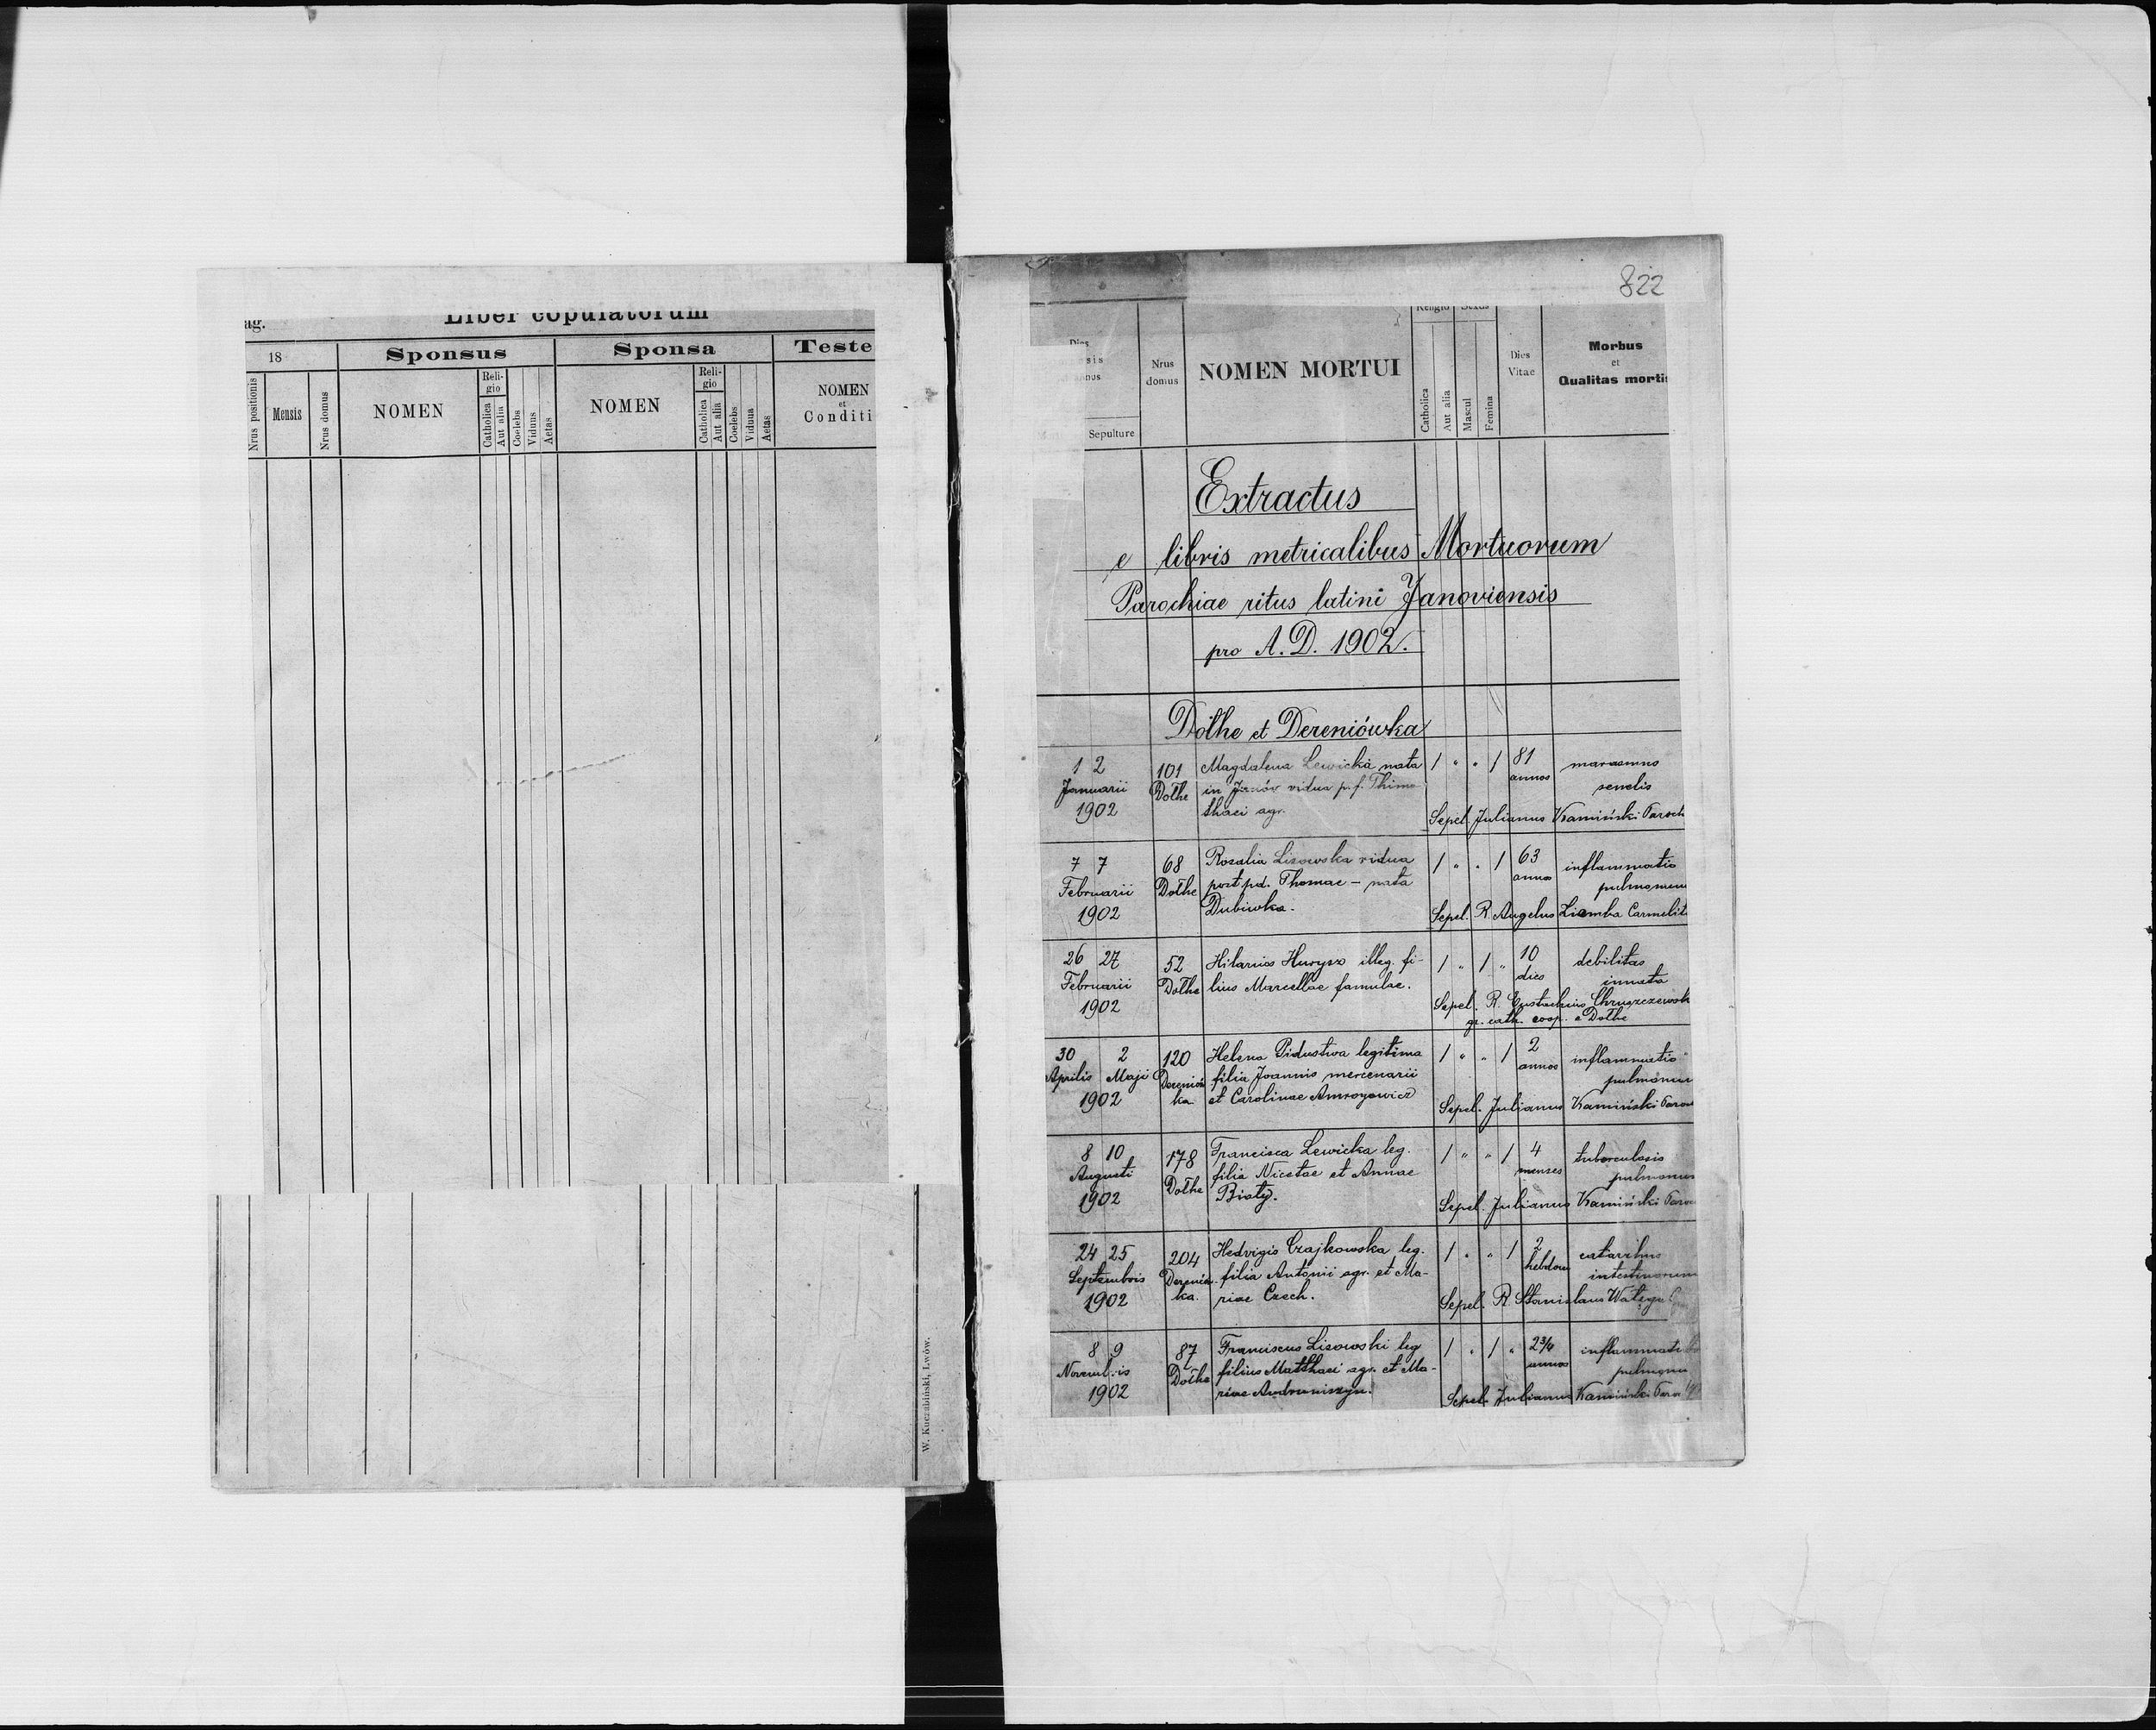 Liber copulatorum
ag.
18
Sponsus
Sponsa
Teste
Nrus positionis
Mensis
Nrus domus
NOMEN
Reli-
gio
Catholica
Aut alia
Coelebs
Viduus
Aetas
NOMEN
Reli-
gio
Catholica
Aut alia
Coelebs
Vidua
Aetas
NOMEN
et
Conditi
W. Kuczabiński, Lwów.
822
Dies
sis
nus
Sepulture
Nrus
domus
NOMEN MORTUI
Religio
Sexus
Catholica
Aut alia
Mascul
Femina
Dies
Vitae
Morbus
et
Qualitas mortis
Extractus
e libris metricalibus Mortuorum
Parochiae ritus latini Janoviensis
pro A. D. 1902.
Dołhe et Dereniówka
1 2 101 Magdalena Lewicka nata 1 " " 1 81 marasmus
Januarii Dołhe in vidua p. f. Thimo- annos senelis
1902 thaei agr. Sepel. Julianus Kamiński Paroch
7 7 68 Rozalia Lisowska vidua 1 " " 1 63 inflammatio
Februarii Dołhe post pd. Thomae – nata annos pulmonum
1902 Dubiwka. Sepel. R. Angelus Ziemba Carmelit
26 27 52 Hilarius Huryn illeg. fi- 1 " 1 " 10 debilitas
Februarii Dołhe lius Marcellae famulae. dies innata
1902 Sepel. R. Eustachius Chruszczewsk
gr. cath. coop. e Dołhe
30 2 120 Helena legitima 1 " " 1 2 inflammatio
Aprilis Maji Derenió filia Joannis mercenarii annos pulmonum
1902 ka. et Carolinae Sepel. Julianus Kamiński Paro
8 10 178 Francisca Lewicka leg. 1 " " 1 4 tuberculosis
Augusti Dołhe filia Nicetae et Annae menses pulmonum
1902 Biały. Sepel. Julianus Kamiński Paro
24 25 204 Hedvigis Czajkowska leg. 1 " " 1 2 catarrhus
Septembris Derenió filia Antonii agr. et Ma- hebdom intestinorum
1902 ka. riae Czech. Sepel. R Stanislaus Wałęga
8 9 87 Franciscus Lisowski leg 1 " 1 " 2¾ inflammati
Novembris Dołhe filius Matthaei agr. et Ma- annos pulmonu
1902 riae Andruniszyn. Sepel. Julianus Kamiński Paro